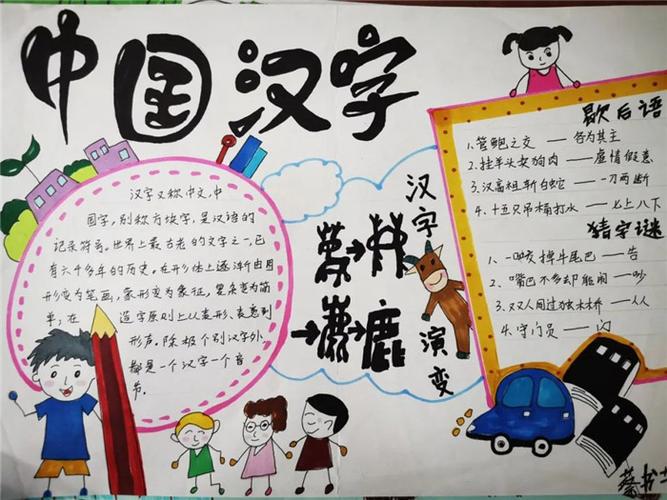 中国汉字
汉字又称中文,中
国字,别称方块字,是汉语的
记录符号。世界上最古老的文字之一,已
有六千多年的历史。在形体上逐渐由图
形变为笔画,象形变为象征,复杂变为简
单,在 造字原则上从表形、表意到
形声。除极个别汉字外
都是一个汉字一个音
节。
汉字
演变
鹿
歇后语
1.管鲍之交——各为其主
2.挂羊头卖狗肉——虚情假意
3.汉高祖斩白蛇——一刀两断
4.十五只吊桶打水——七上八下
猜字谜
1.一口咬掉牛尾巴——告
2.嘴巴不多却能闹——吵
3.双人同过独木桥——从
4.守门员——闪